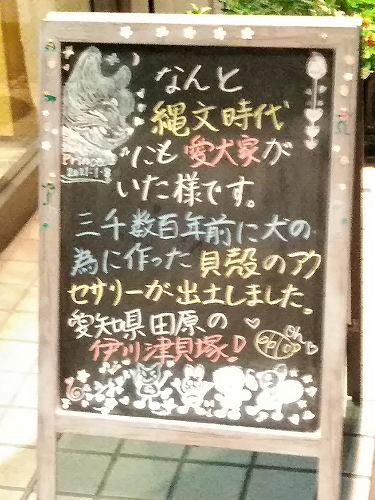 なんと
縄文時代
にも愛犬家が
いた様です。
三千数百年前に犬の
為に作った貝殻のアク
セサリーが出土しました。
愛知県田原の
伊川津貝塚!
Prince